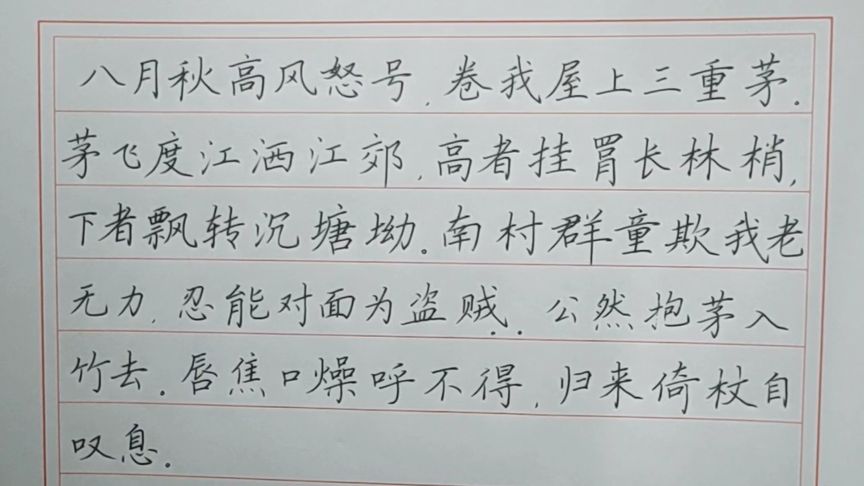 八月秋高风怒号.卷我屋上三重茅.
茅飞度江洒江郊,高者挂罥长林梢,
下者飘转沉塘坳.南村群童欺我老
无力,忍能对面为盗贼..公然抱茅入
竹去.唇焦口燥呼不得,归来倚杖自
叹息.